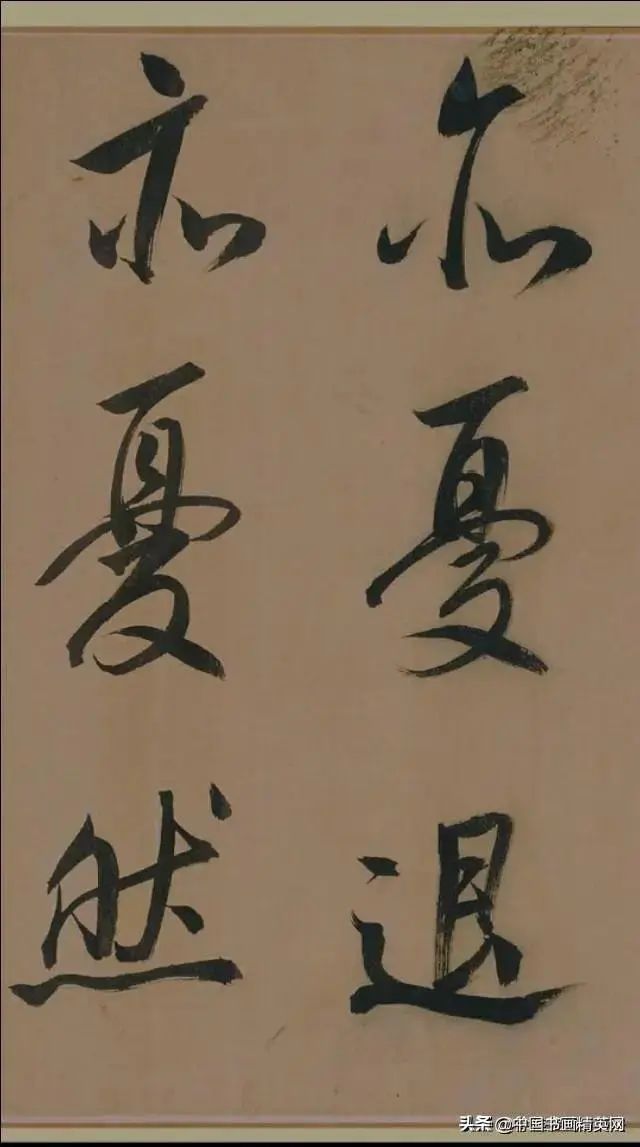 亦憂退
亦憂然
头条 @中国书画精英网